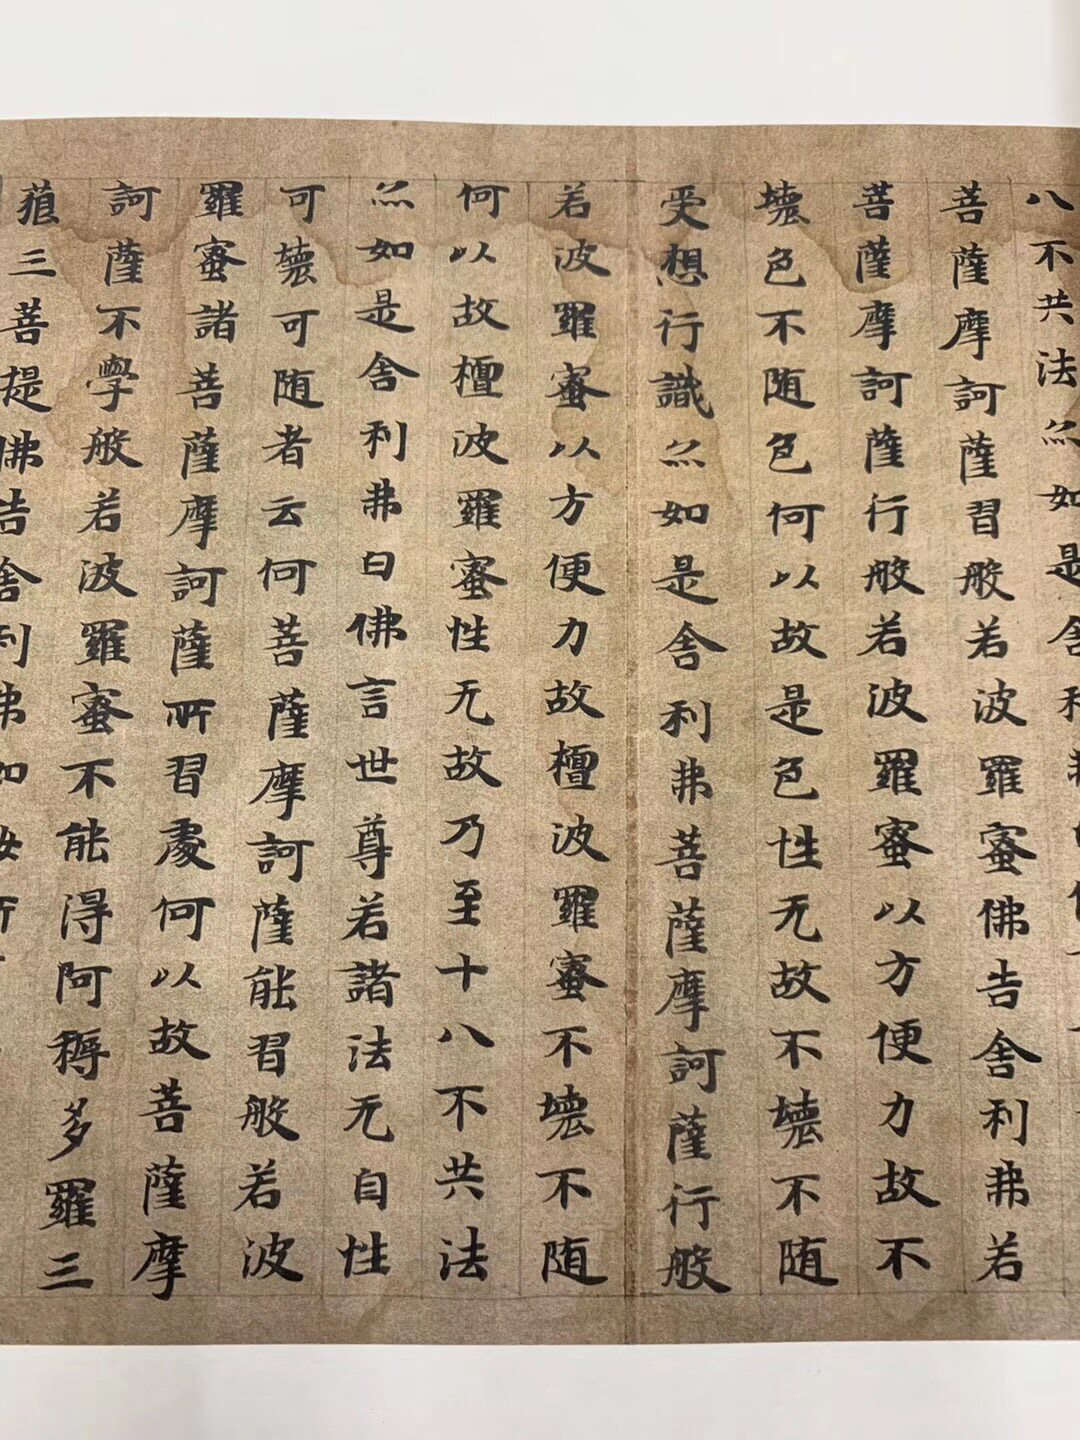 八不共法亦如是舍利弗
菩薩摩訶薩習般若波羅蜜佛告舍利弗若
菩薩摩訶薩行般若波羅蜜以方便力故不
壞色不随色何以故是色性无故不壞不随
受想行識亦如是舍利弗菩薩摩訶薩行般
若波羅蜜以方便力故檀波羅蜜不壞不随
何以故檀波羅蜜性无故乃至十八不共法
亦如是舍利弗白佛言世尊若諸法无自性
可壞可随者云何菩薩摩訶薩能習般若波
羅蜜諸菩薩摩訶薩所習處何以故菩薩摩
訶薩不學般若波羅蜜不能得阿耨多羅三
藐三菩提佛告舍利弗如汝所